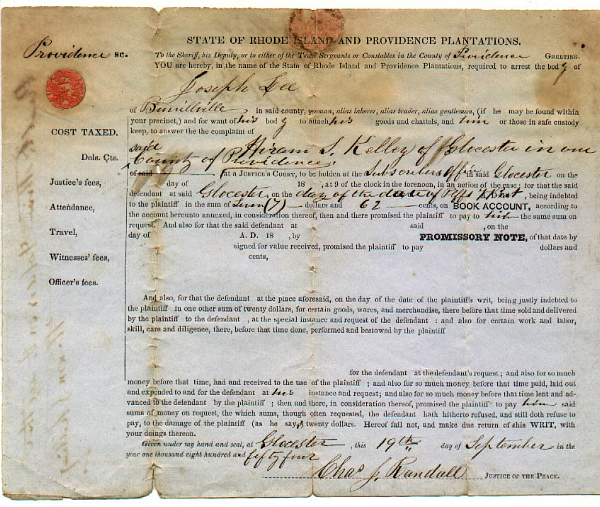 STATE OF RHODE ISLAND AND PROVIDENCE PLANTATIONS.
Providence sc.
To the Sheriff, his Deputy, or to either of the Town Sergeants or Constables in the County of Providence GREETING.
YOU are hereby, in the name of the State of Rhode Island and Providence Plantations, required to arrest the body of
Joseph
of Burrillville in said county, yeoman, alias laborer, alias trader, alias gentleman, (if he may be found within
your precinct,) and for want of his body to attach his goods and chattels, and him or those in safe custody
keep, to answer the the complaint of
Hiram S. Kelley of Glocester in one
said County of Providence
COST TAXED.
Dols. Cts.
Justice's fees,
Attendance,
Travel,
Witnesses' fees,
Officer's fees.
of said at a JUSTICE'S COURT, to be holden at the Subscribers Office in said Glocester on the
day of 18 , at 9 of the clock in the forenoon, in an action of the case; for that the said
defendant at said Glocester, on the day of the being indebted
to the plaintiff in the sum of Seven (7) dollars and 62 cents, on BOOK ACCOUNT, according to
the account hereunto annexed, in consideration thereof, then and there promised the plaintiff to pay the same sum on
request. And also for that the said defendant at said , on the
day of A. D. 18 , by PROMISSORY NOTE, of that date by
signed for value received, promised the plaintiff to pay dollars and
cents,
And also, for that the defendant at the place aforesaid, on the day of the date of the plaintiff's writ, being justly indebted to
the plaintiff in one other sum of twenty dollars, for certain goods, wares, and merchandise, there before that time sold and delivered
by the plaintiff to the defendant , at the special instance and request of the defendant : and also for certain work and labor,
skill, care and diligence, there, before that time done, performed and bestowed by the plaintiff
for the defendant at the defendant's request; and also for so much
money before that time, had and received to the use of the plaintiff ; and also for so much money before that time paid, laid out
and expended to and for the defendant at his instance and request; and also for so much money before that time lent and ad-
vanced to the defendant by the plaintiff ; then and there, in consideration thereof, promised the plaintiff to pay him said
sums of money on request, the which sums, though often requested, the defendant hath hitherto refused, and still doth refuse
to pay, to the damage of the plaintiff (as he says,) twenty dollars. Hereof fail not, and make due return of this WRIT, with
your doings thereon.
Given under my hand and seal, at Glocester, this 19th day of September in the
year one thousand eight hundred and fifty four
Chas J. Randall JUSTICE OF THE PEACE.